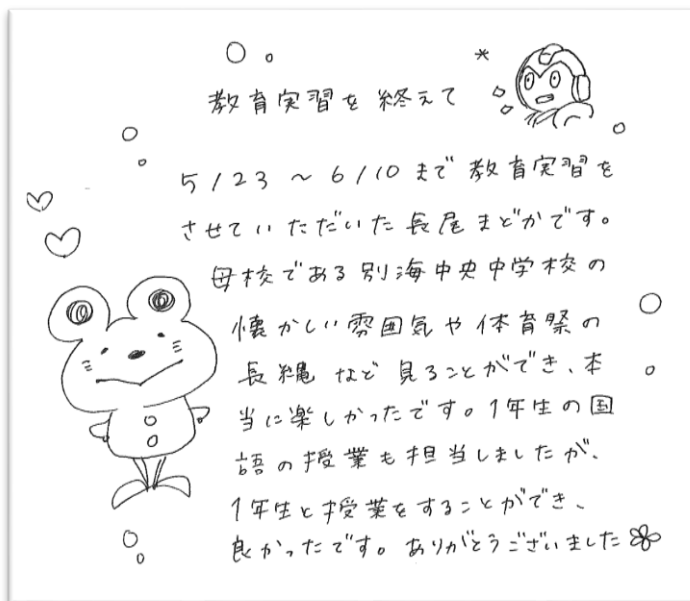 教育実習を終えて
5/23～6/10まで教育実習を
させていただいた長尾まどかです。
母校である別海中央中学校の
懐かしい雰囲気や体育祭の
長縄など見ることができ、本
当に楽しかったです。1年生の国
語の授業も担当しましたが、
1年生と授業をすることができ、
良かったです。ありがとうございました